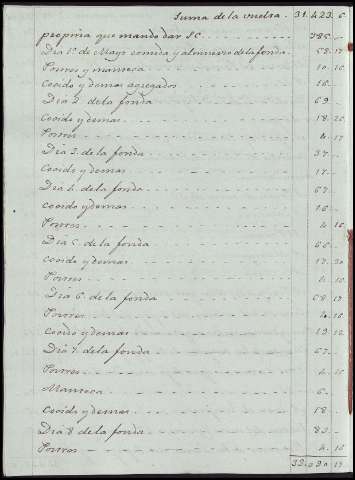 Suma de la vuelta 31.423. 6
propina que mando dar S.E. 386. -
Dia 1º de Mayo comida y almuerzo de la fonda 58. 17
Porros y manteca 10. 16
Cocido y demas agregados 16. -
Dia 2. de la fonda 69. -
Cocido y demas 18.
Porros 4. 17
Dia 3. de la fonda 37. -
Cocido y demas 17. -
Dia 4. de la fonda 67. -
Cocido y demas 16. -
Porros 4. 16
Dia 5. de la fonda 66. -
Cocido y demas 17.
Porros 4. 16
Dia 6. de la fonda 68. 17
Porros 4. 16
Cocido y demas 19. 16
Dia 7. de la fonda 67. -
Porros 4. 16
Manteca 6. -
Cocido y demas 18. -
Dia 8 de la fonda 83. -
Porros 4. 16
17